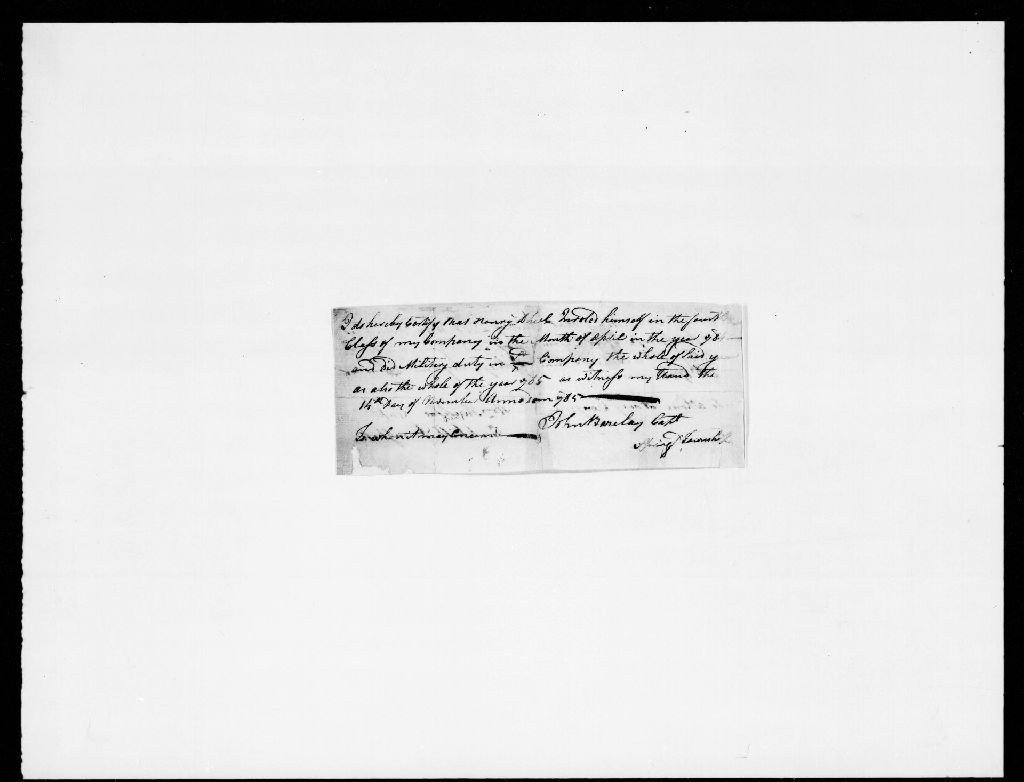 I do hereby Certify that Henry Inrold himself in the fourth
Class of my Company in the Month of April in the year 78
and did Military duty in Company the whole of said y
as also the whole of the year 785 as witness my Hand the
14th Day of November Annodom 785
John Barclay Capt
To whom it may Concern
Spring Townsh